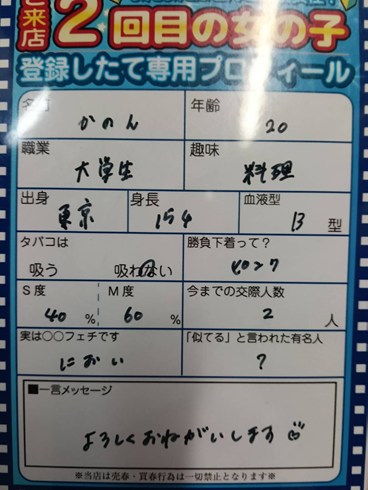 ご来店
2回目の女の子
登録したて専用プロフィール
かのん
年齢
20
職業
大学生
趣味
料理
出身
東京
身長
154
血液型
B型
タバコは
吸う 吸わない
勝負下着って？
S度
40%
M度
60%
今までの交際人数
2人
実は○○フェチです
におい
「似てる」と言われた有名人
?
■一言メッセージ
よろしくおねがいします
※当店は売春・買春行為は一切禁止となります※